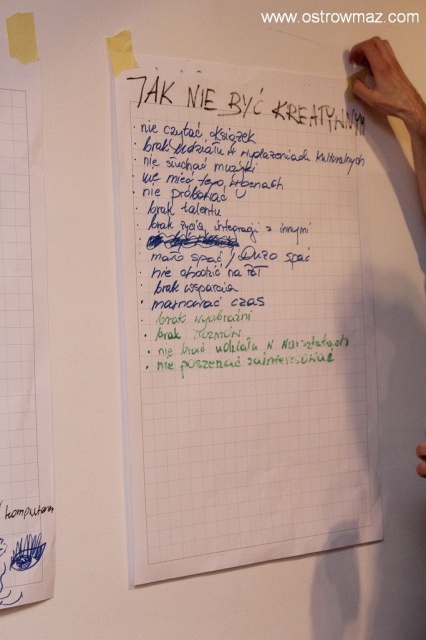 www.ostrowmaz.com
JAK NIE BYĆ KREATYWNYM
• nie czytać książek
• brak udziału w wydarzeniach kulturalnych
• nie słuchać muzyki
• nie mieć
• nie próbować
brak talentu
• brak życia, integracji z innymi
• mało spać / Dużo spać
• nie chodzić na
• brak wsparcia
• marnować czas
• brak wyobraźni
• brak rozmów
• nie brać udziału w warsztatach
• nie poszerzać zainteresowań
komputer